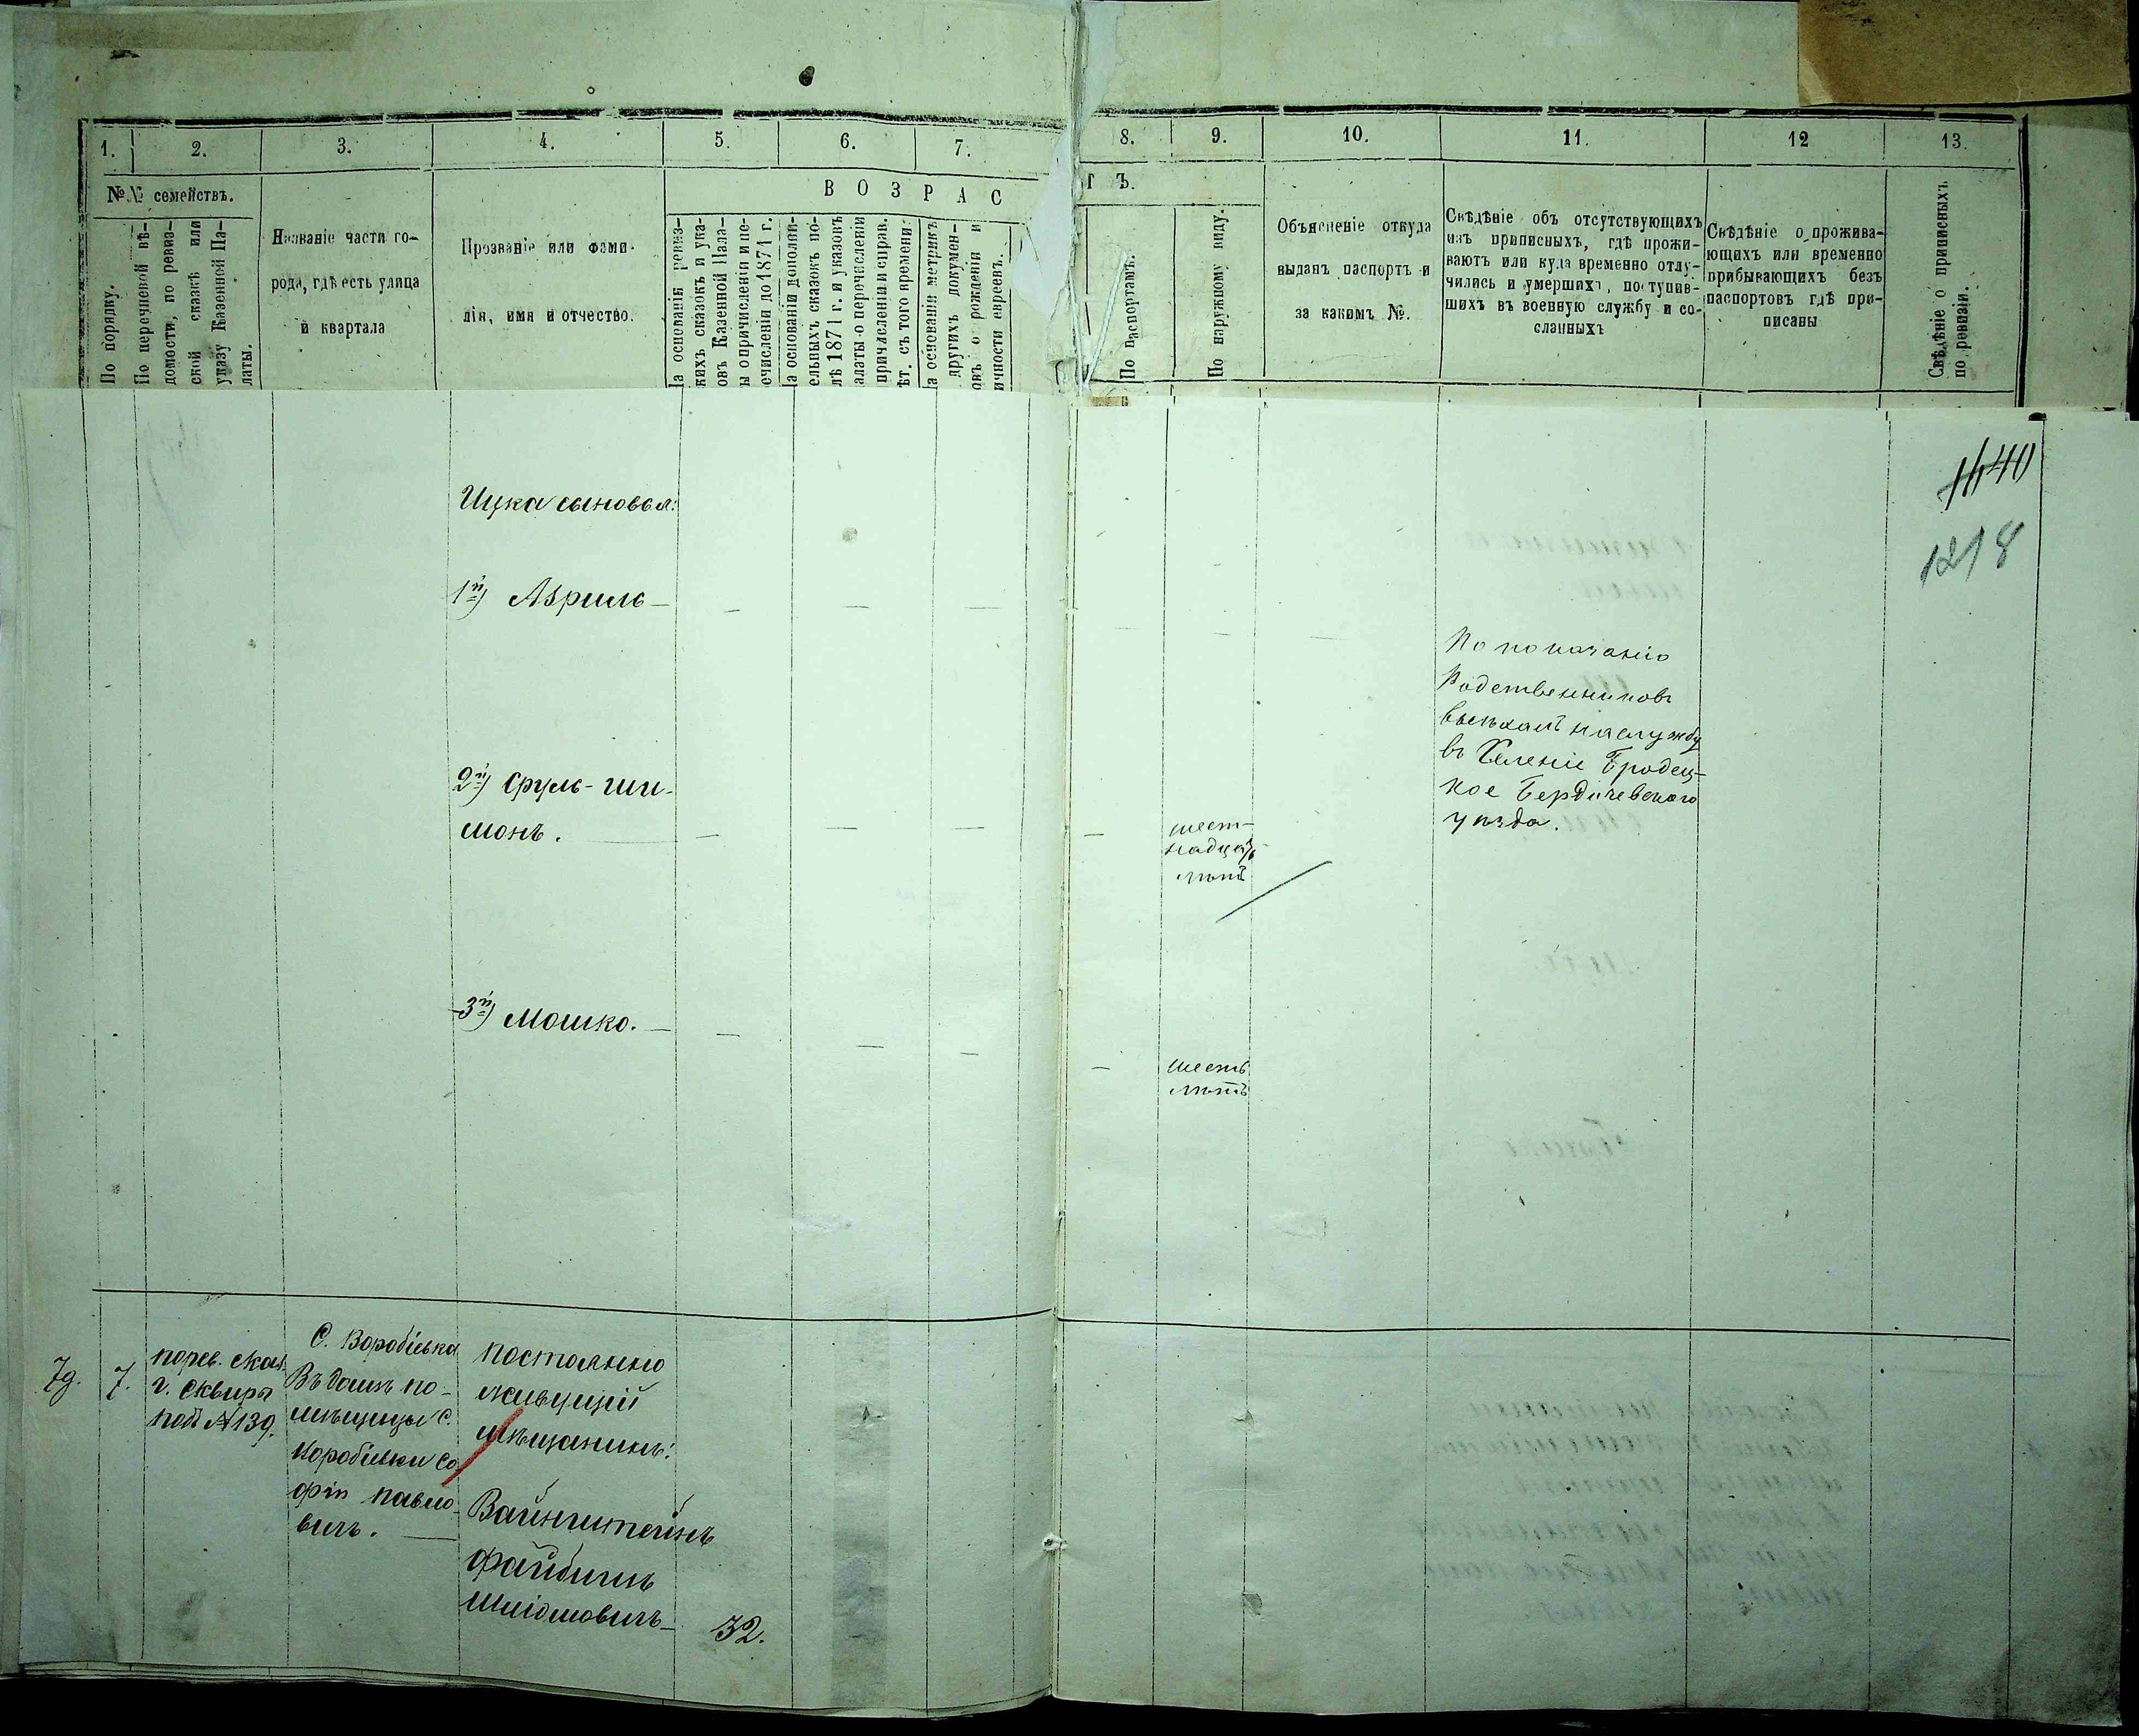 1. 2. 3. 4. 5. 6. 7. 8. 9. 10. 11. 12 13.
№№ семействъ.
По порядку.
По перечневой вѣ-
домости, по ревиз-
ской сказкѣ или
указу Казенной Па-
латы.
Названіе части го-
рода, гдѣ есть улица
и квартала
Прозваніе или фами-
лія, имя и отчество.
ВОЗРАС
ТЪ.
а основаніи ревиз-
кихъ сказокъ и ука-
овъ Казенной Пала-
ы о причисленіи и пе-
ечисленіи до 1871 г.
а основаніи дополни-
ельныхъ сказокъ по-
лѣ 1871 г. и указовъ
алаты о перечисленіи
причисленіи и справ.
ѣт. съ того времени.
а основаніи метрикъ
других докумен-
овъ о рожденіи и
ичности евреевъ.
По паспортамъ.
По наружному виду.
Объясненіе откуда
выданъ паспортъ и
за какимъ №.
Свѣдѣніе объ отсутствующихъ
изъ приписныхъ, гдѣ прожи-
ваютъ или куда временно отлу-
чились и умершихъ, поступив-
шихъ въ военную службу и со-
сланныхъ
Свѣдѣніе о прожива-
ющихъ или временно
прибывающихъ безъ
паспортовъ гдѣ при-
писаны
Свѣдѣніе о приписныхъ
по ревизіи.
1218
Ицка сыновья:
1й) Азриль —
По показанію
Родственниковъ
выѣхалъ на службу
въ Селеніе Бродец-
кое Бердичевского
уѣзда.
2й) Сруль-Ши-
монъ.
шест-
надцать
лѣтъ
3й) Мошко. —
шесть
лѣтъ
7. порев. сказ.
г. Сквиры
подъ №139.
С. Воробіевка
Въ домѣ по-
мѣщицы с.
Воробіевки Со
фіи Павло-
вичъ.
Постоянно
живущій
мѣщанинъ:
Вайнштейнъ
Файбишъ
Шліомовичъ — 32.